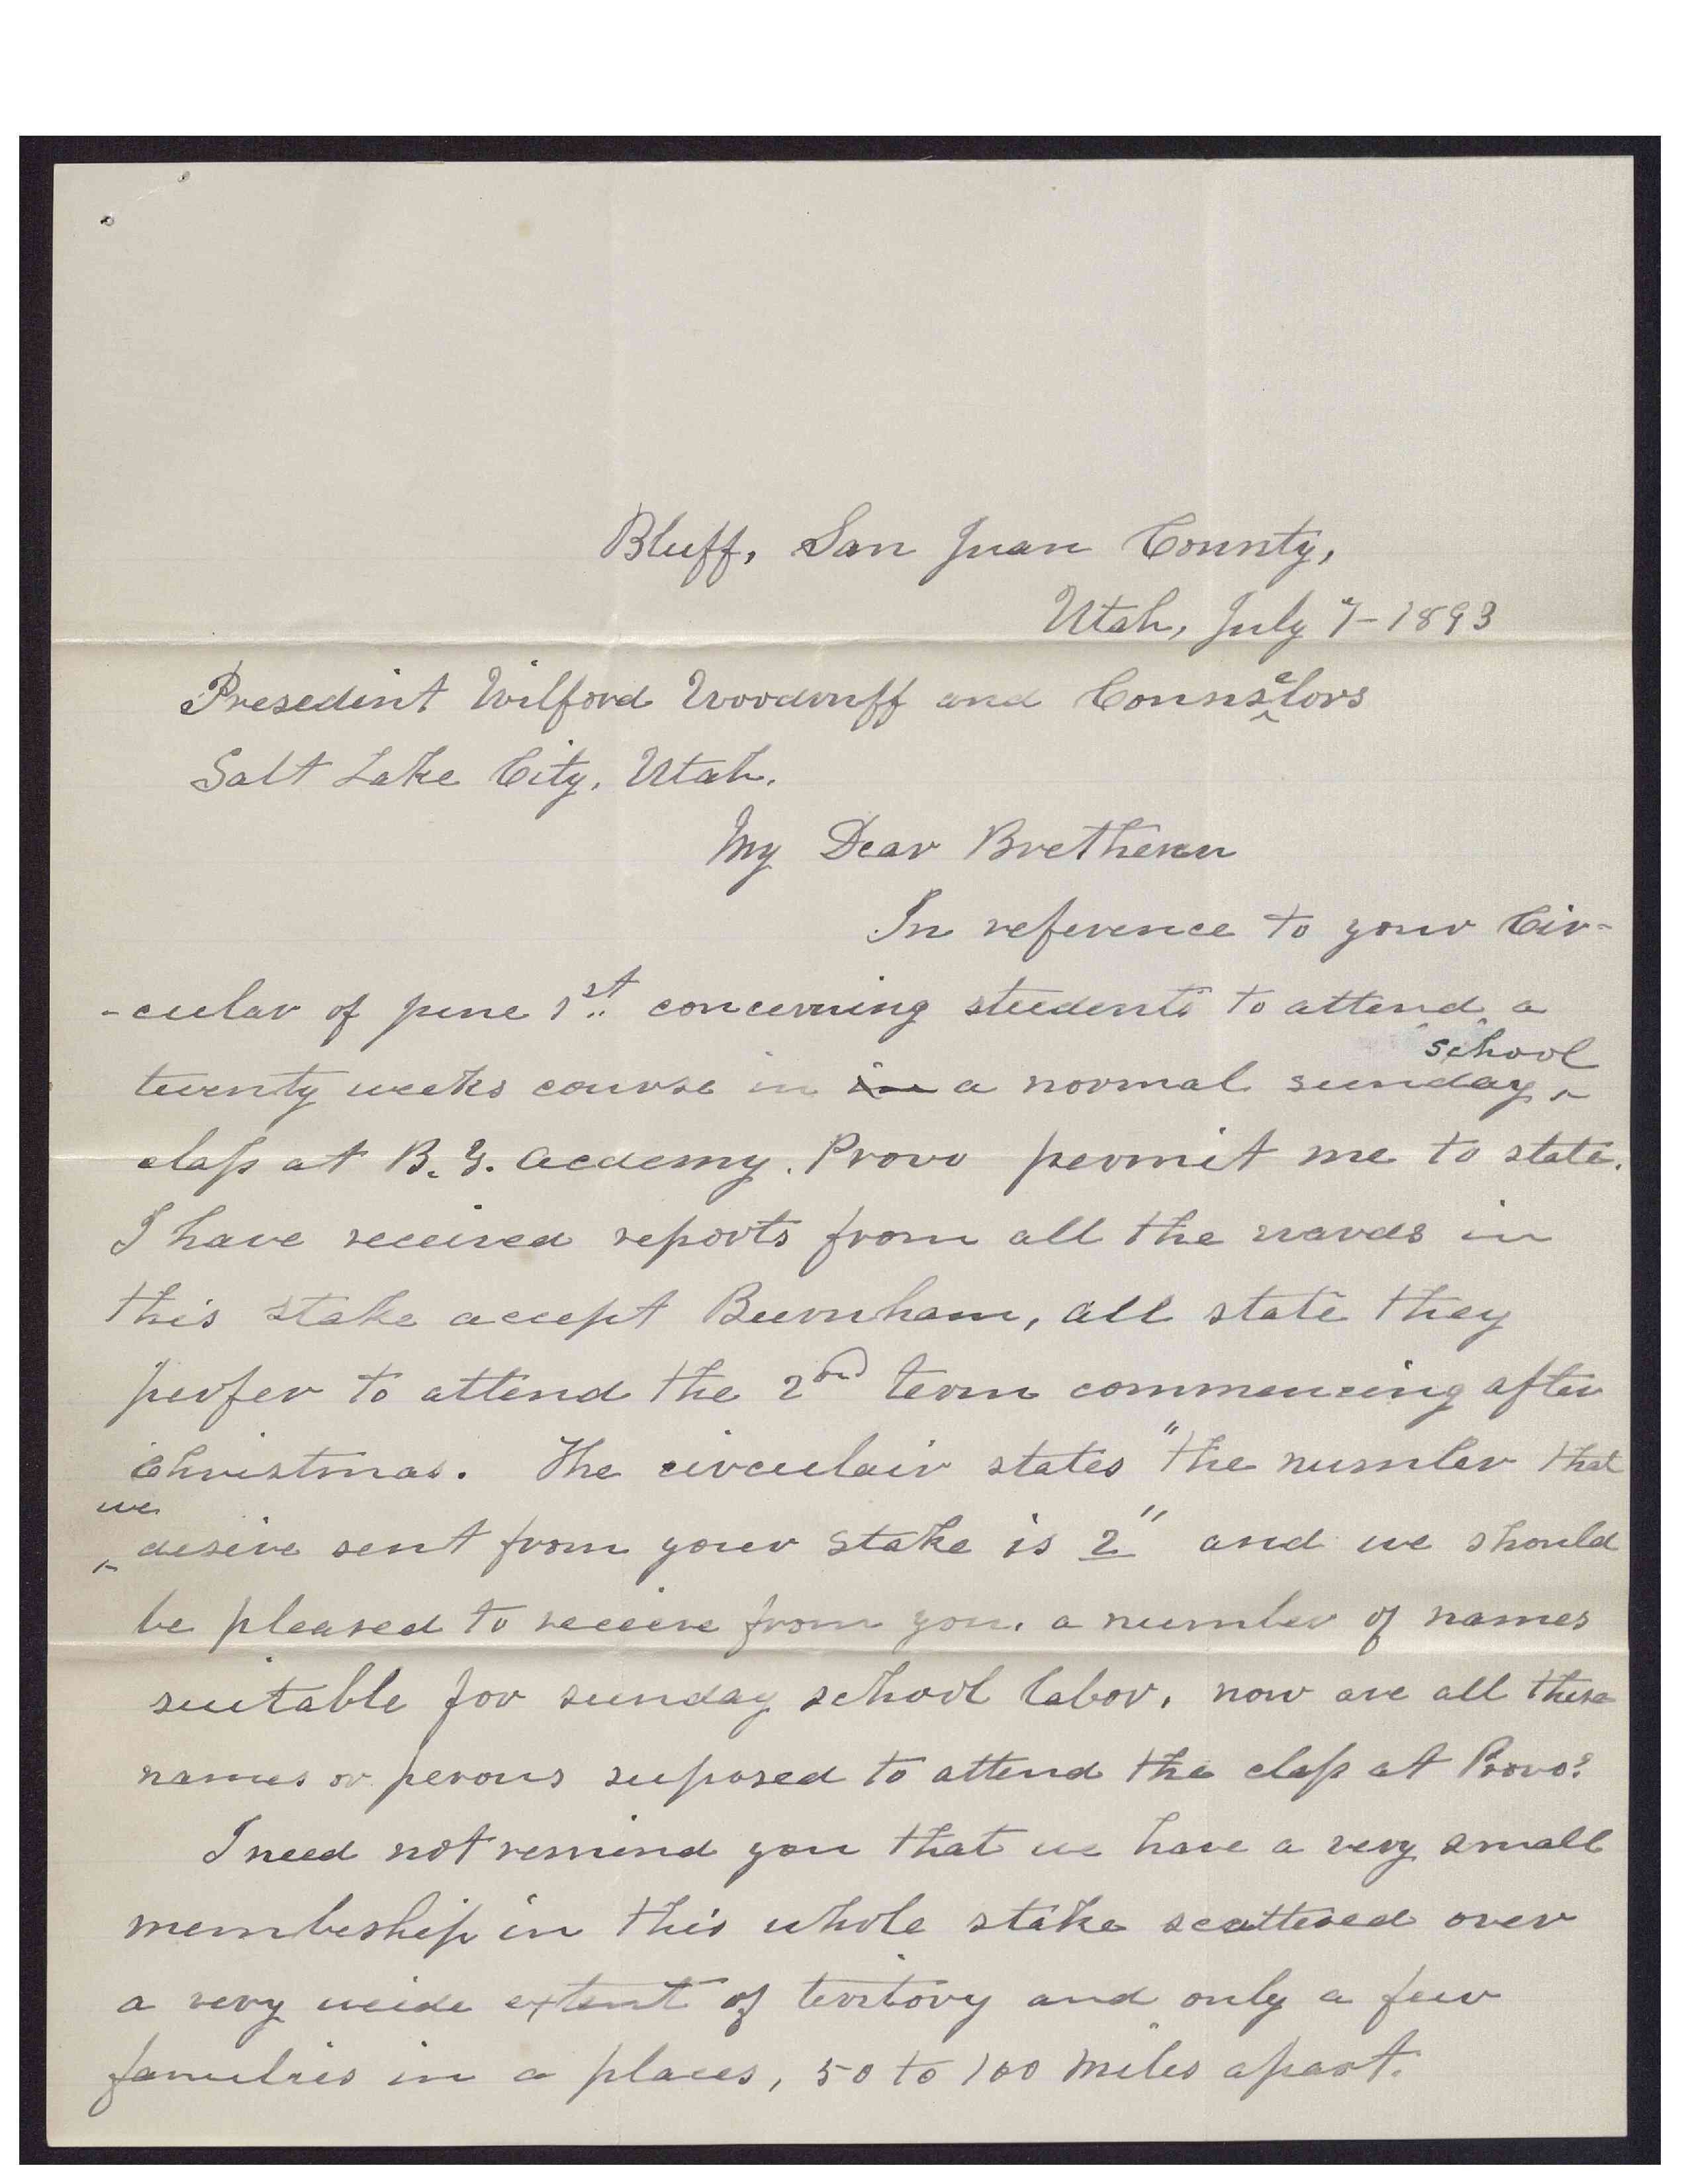 Bluff, San Juan County,
Utah, July 7-1893
Presedint Wilford Woodruff and Counselors
Salt Lake City, Utah.
My Dear Bretheren
In reference to your Cir-
-cular of June 1st concerning students to attend a
twenty weeks course in in a normal sunday school
class at B.Y. Acdemy. Provo permit me to state.
I have received reports from all the wards in
this stake accept Burnham, all state they
perfer to attend the 2nd term commencing after
Christmas. The circulair states "the number that
we desire sent from your stake is 2" and we should
be pleased to receive from you, a number of names
suitable for sunday school labor, now are all these
names or persons suposed to attend the class at Provo?
I need not remind you that we have a very small
membeship in this whole stake scattered over
a very wide extent of teritory and only a few
families in a places, 50 to 100 miles apart.